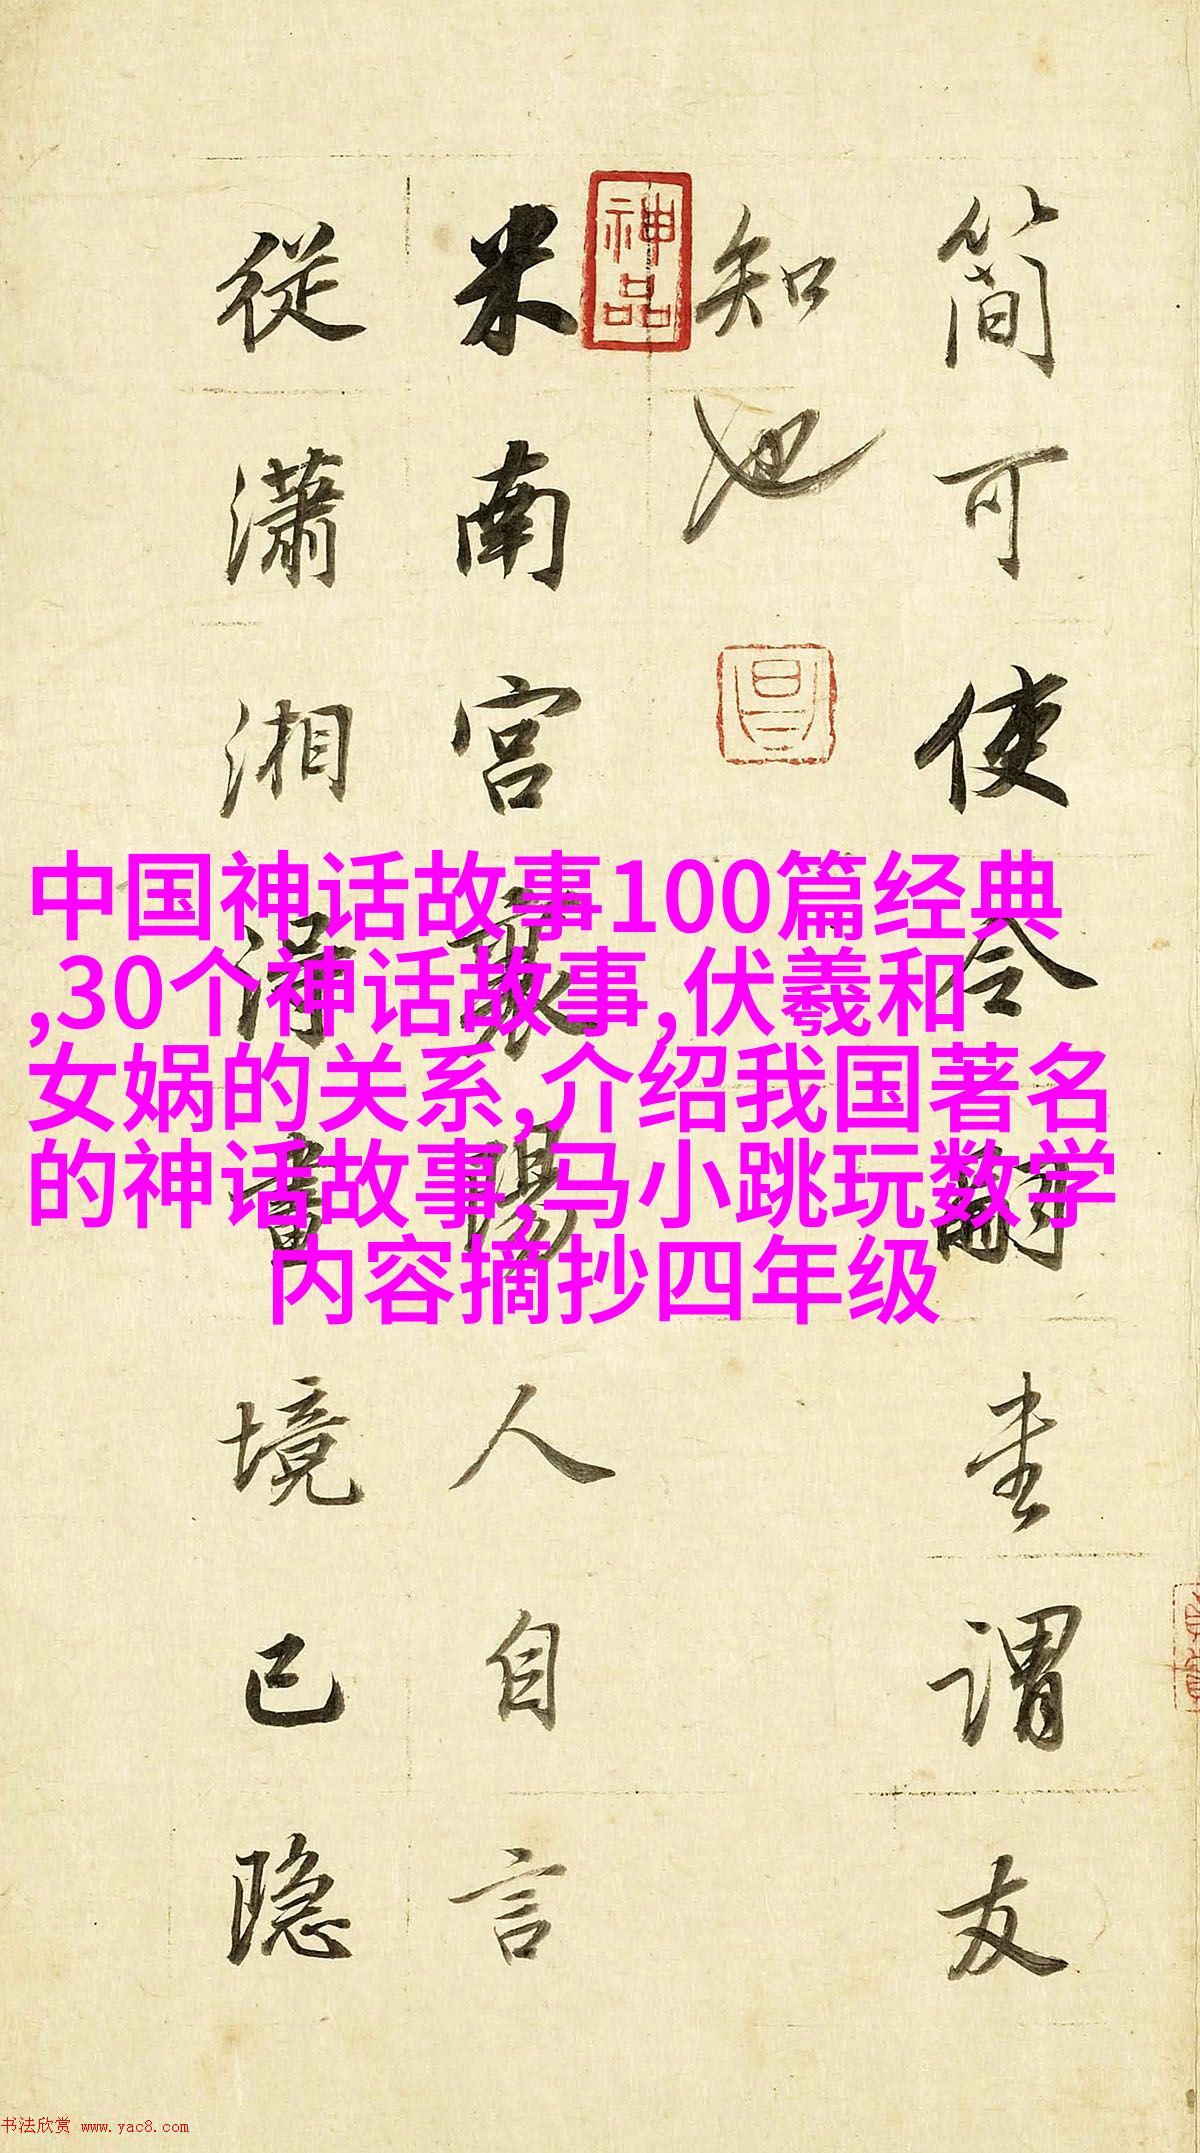 简可使令翻圭谓友
知也
米南宫襄陽人自言
從瀟湘得畫境已隐
神品
中国神话故事100篇经典
,30个神话故事,伏羲和
女娲的关系,介绍我国著名
的神话故事,马小跳玩数学
内容摘抄四年级
书法欣赏 www.yac8.com